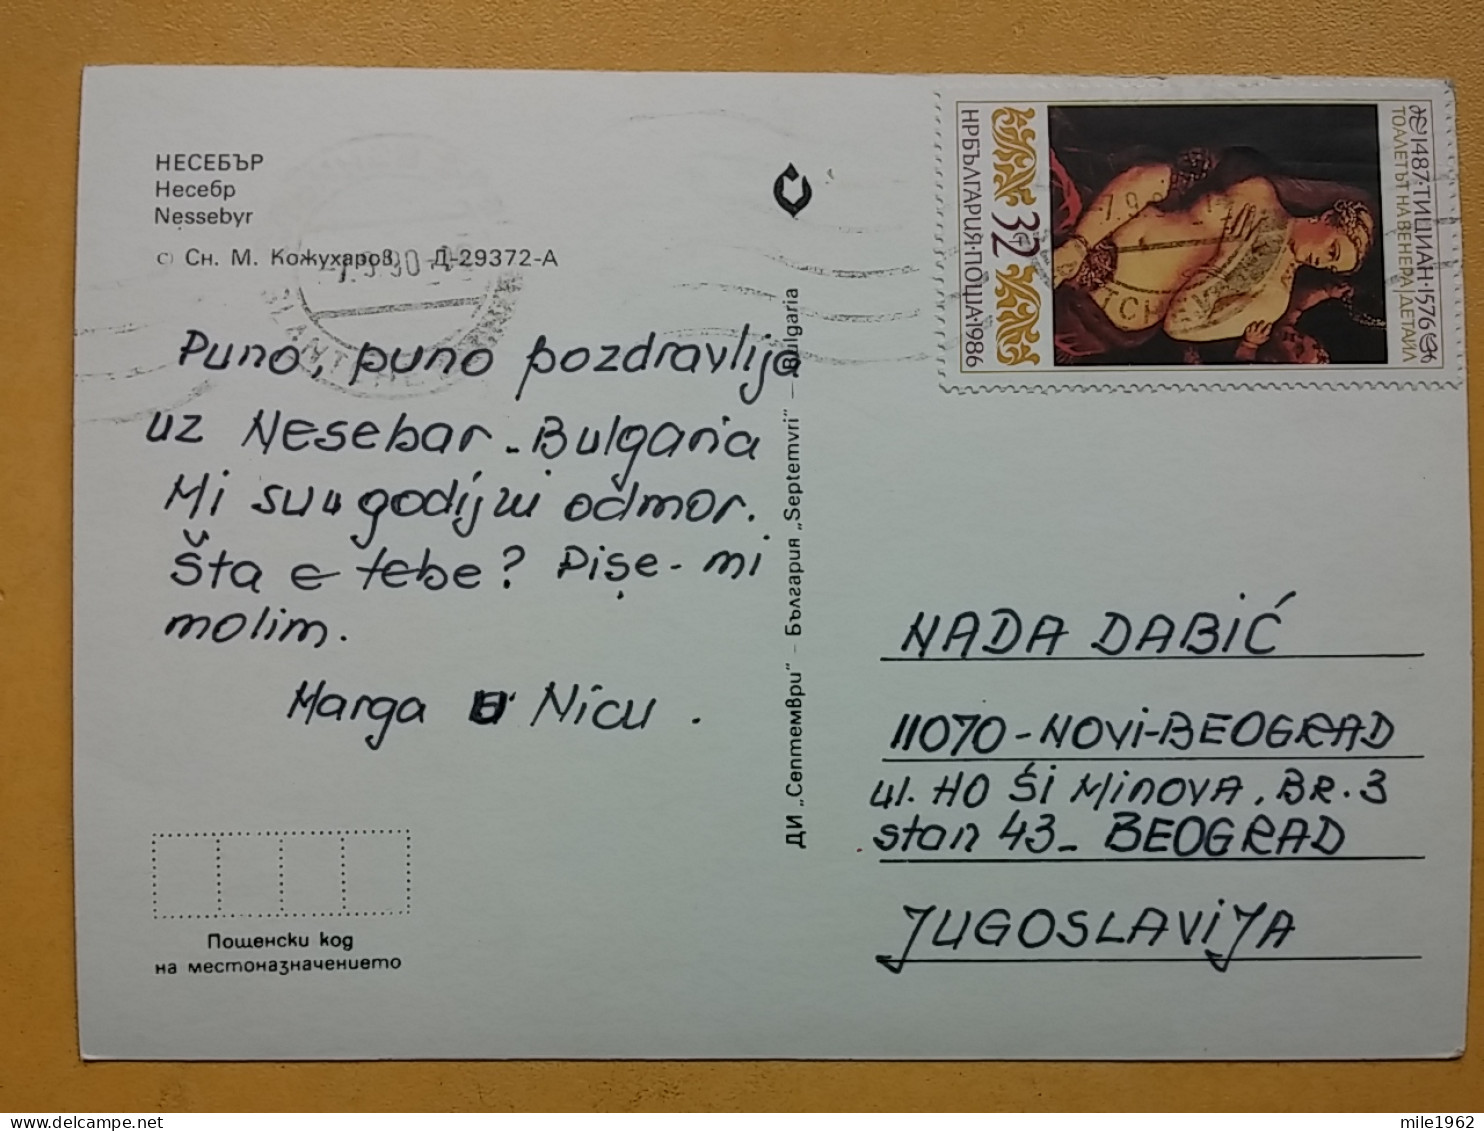 НЕСЕБЪР
Несебр
Nessebyr
© Сн. М. Кожухаров Д-29372-А
Puno, puno pozdravlija
uz Nesebar - Bulgaria
Mi su godijni odmor.
Šta e tebe? Pişe-mi
molim.
Marga Nicu.
Пощенски код
на местоназначението
ДИ „Септември" – България „Septemvri" – Bulgaria
1487·ТИЦИАН·1576
ТОАЛЕТЪТ НА ВЕНЕРА/ДЕТАЙЛ
32
НРБЪЛГАРИЯ·ПОЩА·1986
NADA DABIĆ
11070-NOVI-BEOGRAD
ul. HO ŠI MINOVA, BR. 3
stan 43- BEOGRAD
JUGOSLAVIJA
mile1962